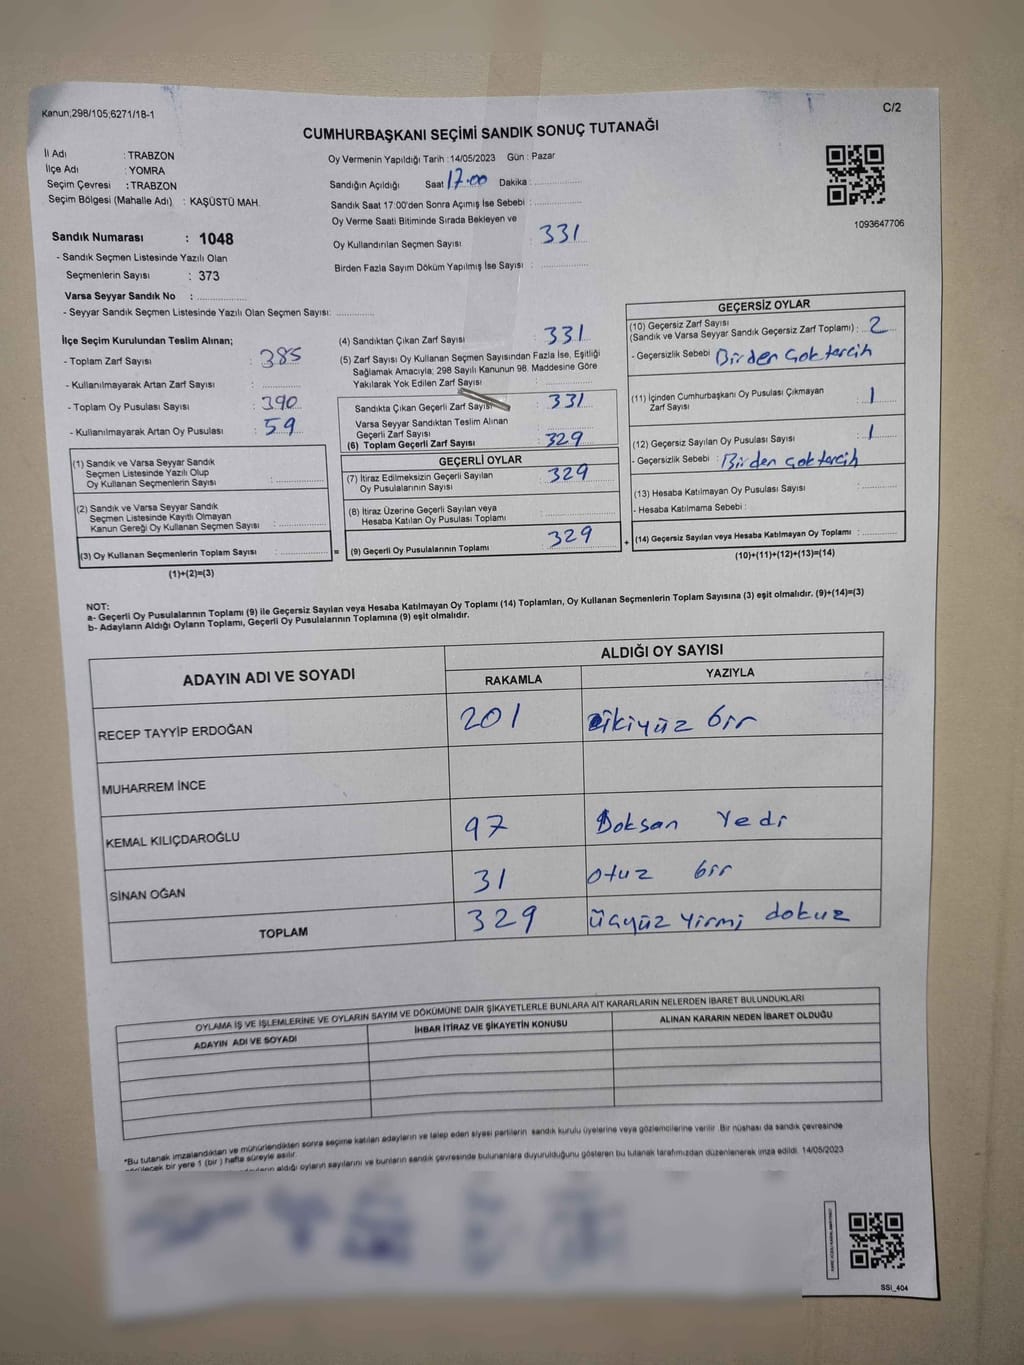 Kanun;298/105;6271/18-1
C/2
CUMHURBAŞKANI SEÇİMİ SANDIK SONUÇ TUTANAĞI
İl Adı : TRABZON
İlçe Adı : YOMRA
Seçim Çevresi : TRABZON
Seçim Bölgesi (Mahalle Adı) : KAŞÜSTÜ MAH.
Sandık Numarası : 1048
- Sandık Seçmen Listesinde Yazılı Olan
Seçmenlerin Sayısı : 373
Varsa Seyyar Sandık No :
- Seyyar Sandık Seçmen Listesinde Yazılı Olan Seçmen Sayısı:
Oy Vermenin Yapıldığı Tarih : 14/05/2023 Gün : Pazar
Sandığın Açıldığı Saat 17.00 Dakika :
Sandık Saat 17:00'den Sonra Açımış İse Sebebi :
Oy Verme Saati Bitiminde Sırada Bekleyen ve
Oy Kullandırılan Seçmen Sayısı : 331
Birden Fazla Sayım Döküm Yapılmış İse Sayısı :
1093647706
İlçe Seçim Kurulundan Teslim Alınan;
- Toplam Zarf Sayısı : 385
- Kullanılmayarak Artan Zarf Sayısı :
- Toplam Oy Pusulası Sayısı : 390
- Kullanılmayarak Artan Oy Pusulası : 59
(1) Sandık ve Varsa Seyyar Sandık
Seçmen Listesinde Yazılı Olup
Oy Kullanan Seçmenlerin Sayısı :
(2) Sandık ve Varsa Seyyar Sandık
Seçmen Listesinde Kayıtlı Olmayan
Kanun Gereği Oy Kullanan Seçmen Sayısı :
(3) Oy Kullanan Seçmenlerin Toplam Sayısı :
(1)+(2)=(3)
(4) Sandıktan Çıkan Zarf Sayısı : 331
(5) Zarf Sayısı Oy Kullanan Seçmen Sayısından Fazla İse, Eşitliği
Sağlamak Amacıyla; 298 Sayılı Kanunun 98. Maddesine Göre
Yakılarak Yok Edilen Zarf Sayısı :
Sandıkta Çıkan Geçerli Zarf Sayısı : 331
Varsa Seyyar Sandıktan Teslim Alınan
Geçerli Zarf Sayısı :
(6) Toplam Geçerli Zarf Sayısı : 329
GEÇERLİ OYLAR
(7) İtiraz Edilmeksizin Geçerli Sayılan
Oy Pusulalarının Sayısı : 329
(8) İtiraz Üzerine Geçerli Sayılan veya
Hesaba Katılan Oy Pusulası Toplamı :
= (9) Geçerli Oy Pusulalarının Toplamı : 329
GEÇERSİZ OYLAR
(10) Geçersiz Zarf Sayısı
(Sandık ve Varsa Seyyar Sandık Geçersiz Zarf Toplamı) : 2
- Geçersizlik Sebebi : Birden çok tercih
(11) İçinden Cumhurbaşkanı Oy Pusulası Çıkmayan
Zarf Sayısı : 1
(12) Geçersiz Sayılan Oy Pusulası Sayısı : 1
- Geçersizlik Sebebi : Birden çok tercih
(13) Hesaba Katılmayan Oy Pusulası Sayısı :
- Hesaba Katılmama Sebebi :
+ (14) Geçersiz Sayılan veya Hesaba Katılmayan Oy Toplamı :
(10)+(11)+(12)+(13)=(14)
NOT:
a- Geçerli Oy Pusulalarının Toplamı (9) ile Geçersiz Sayılan veya Hesaba Katılmayan Oy Toplamı (14) Toplamları, Oy Kullanan Seçmenlerin Toplam Sayısına (3) eşit olmalıdır. (9)+(14)=(3)
b- Adayların Aldığı Oyların Toplamı, Geçerli Oy Pusulalarının Toplamına (9) eşit olmalıdır.
ADAYIN ADI VE SOYADI ALDIĞI OY SAYISI
RAKAMLA YAZIYLA
RECEP TAYYİP ERDOĞAN 201 ikiyüz bir
MUHARREM İNCE
KEMAL KILIÇDAROĞLU 97 Doksan Yedi
SİNAN OĞAN 31 otuz bir
TOPLAM 329 üçyüz yirmi dokuz
OYLAMA İŞ VE İŞLEMLERİNE VE OYLARIN SAYIM VE DÖKÜMÜNE DAİR ŞİKAYETLERLE BUNLARA AİT KARARLARIN NELERDEN İBARET BULUNDUKLARI
ADAYIN ADI VE SOYADI İHBAR İTİRAZ VE ŞİKAYETİN KONUSU ALINAN KARARIN NEDEN İBARET OLDUĞU
*Bu tutanak imzalandıktan ve mühürlendikten sonra seçime katılan adayların ve talep eden siyasi partilerin sandık kurulu üyelerine veya gözlemcilerine verilir. Bir nüshası da sandık çevresinde
görülecek bir yere 1 (bir) hafta süreyle asılır.
aldığı oyların sayılarını ve bunların sandık çevresinde bulunanlara duyurulduğunu gösteren bu tutanak tarafımızdan düzenlenerek imza edildi. 14/05/2023
SSİ_404